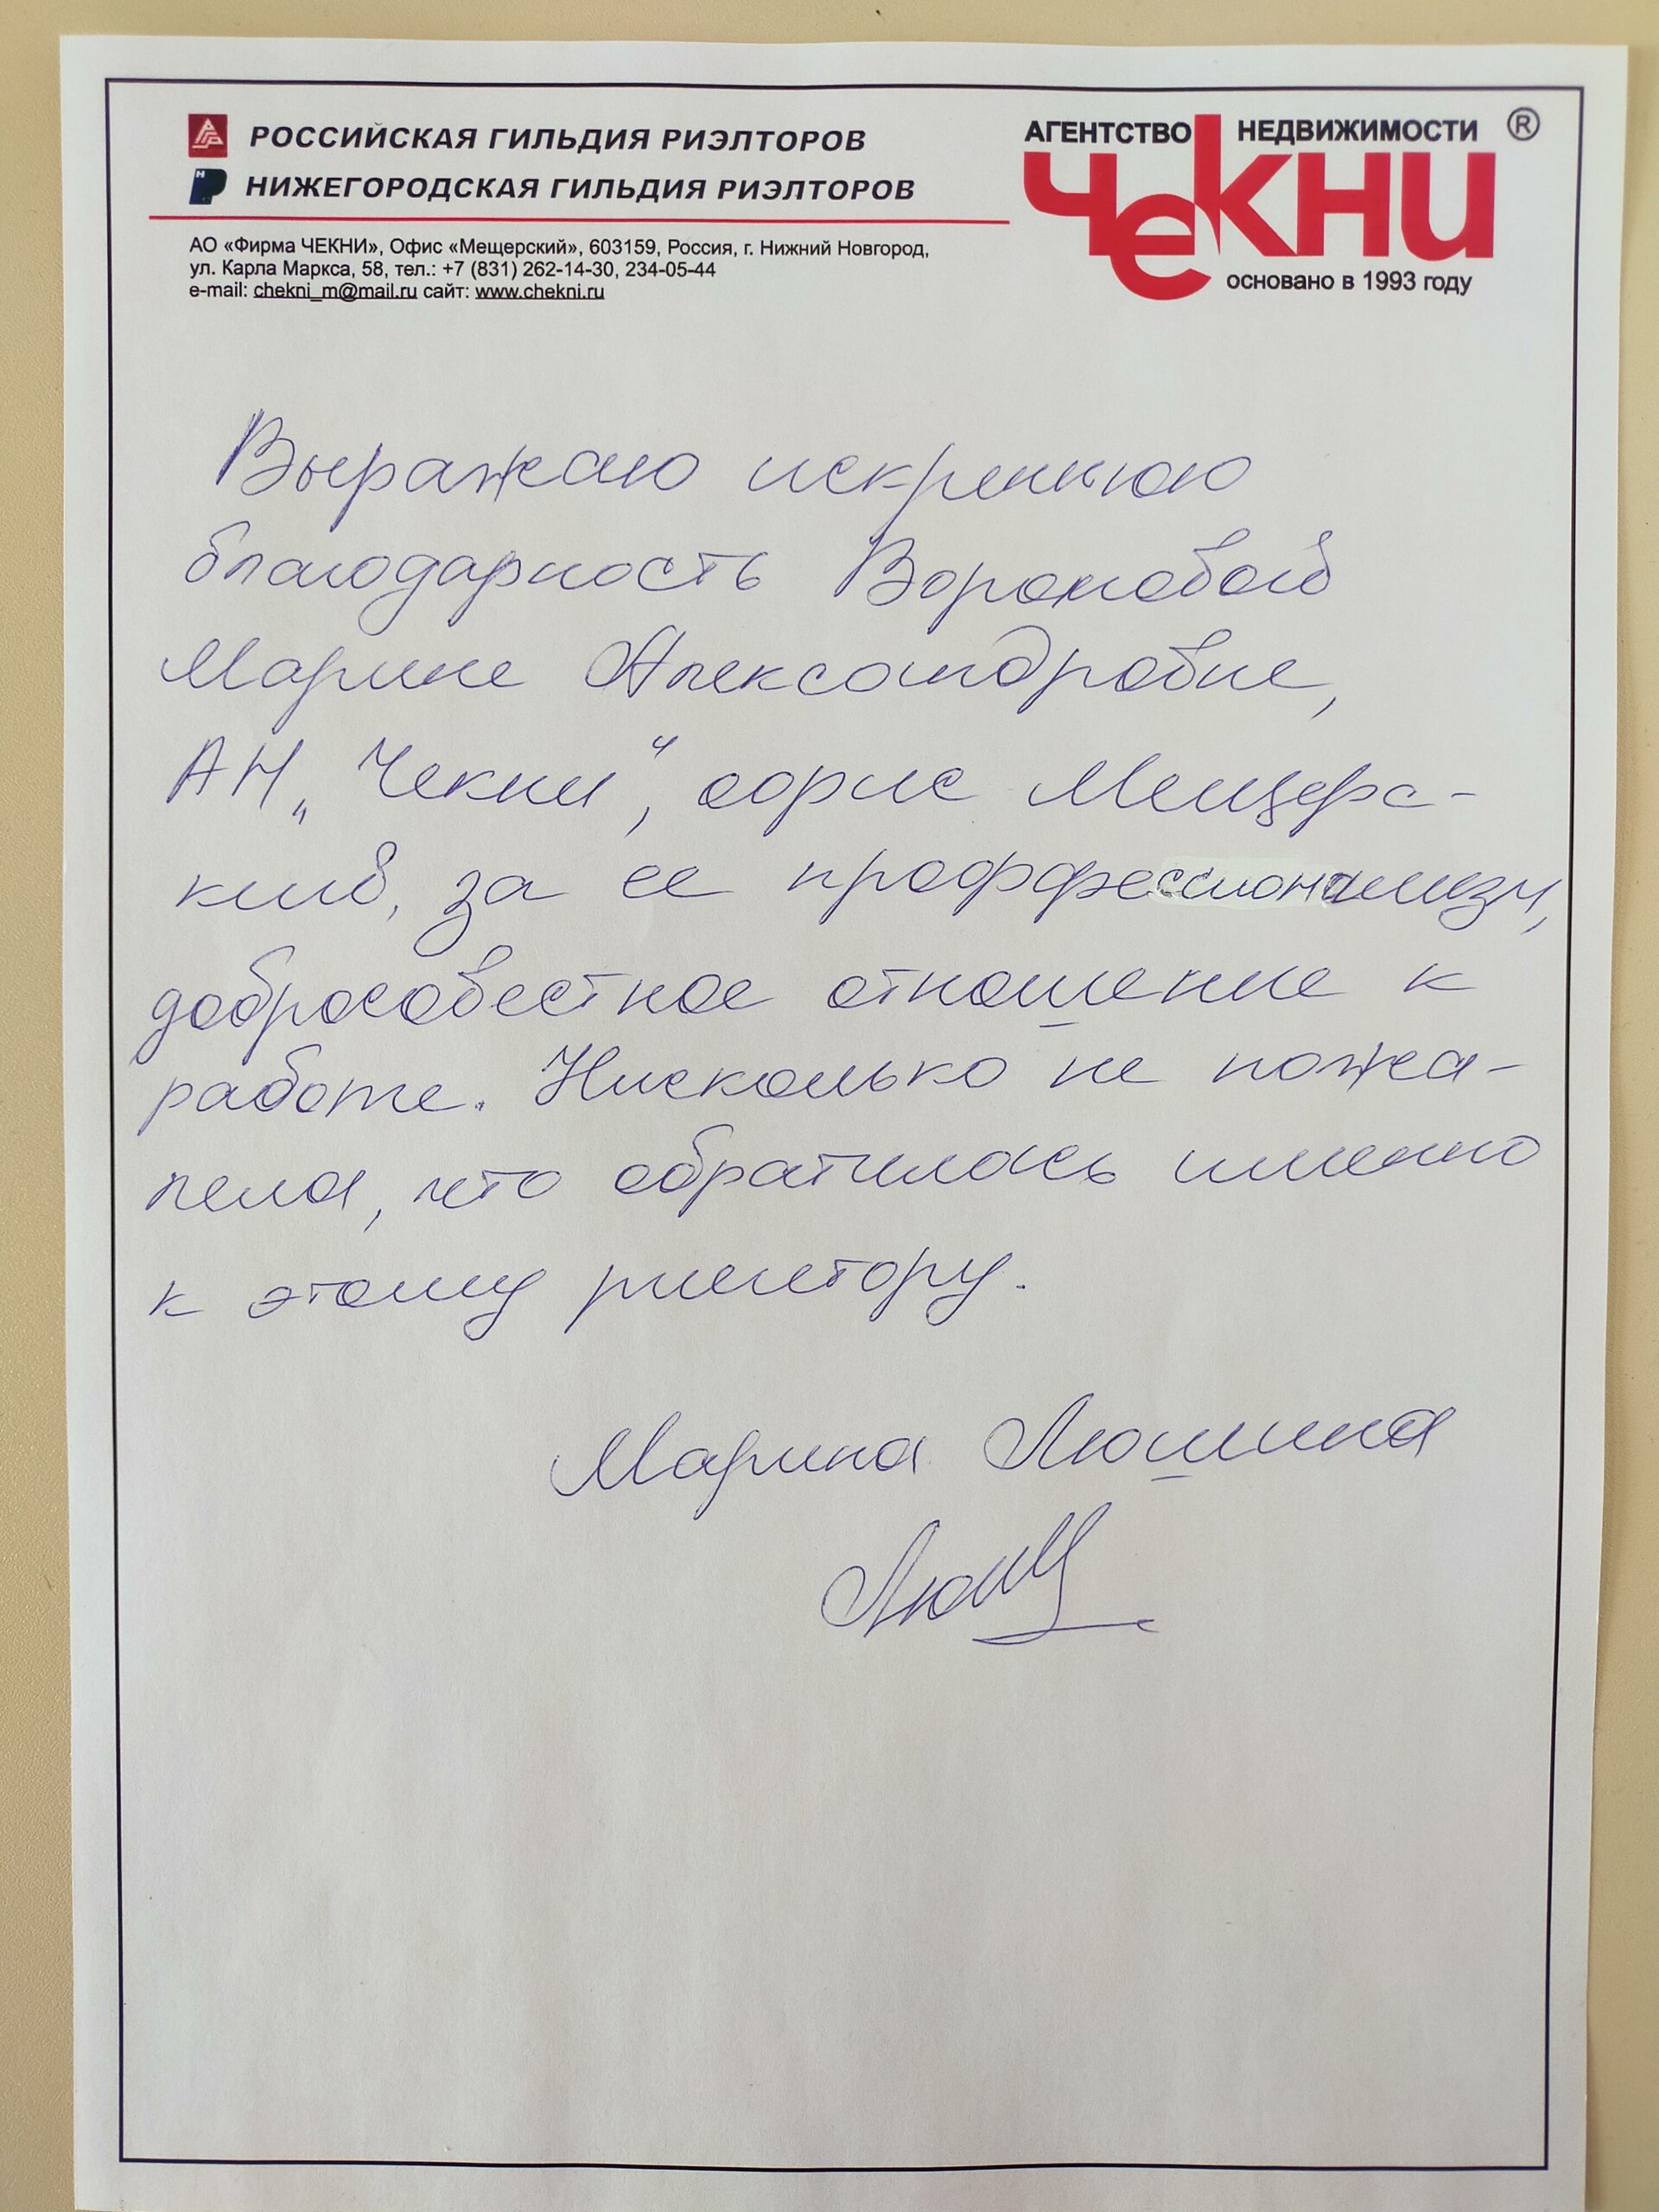 РОССИЙСКАЯ ГИЛЬДИЯ РИЭЛТОРОВ
НИЖЕГОРОДСКАЯ ГИЛЬДИЯ РИЭЛТОРОВ
АО «Фирма ЧЕКНИ», Офис «Мещерский», 603159, Россия, г. Нижний Новгород,
ул. Карла Маркса, 58, тел.: +7 (831) 262-14-30, 234-05-44
e-mail: chekni_m@mail.ru сайт: www.chekni.ru
АГЕНТСТВО НЕДВИЖИМОСТИ ®
ЧЕКНИ
основано в 1993 году
Выражаю искреннюю
благодарность Вороновой
Марине Александровне,
АН „Чекни“, офис Мещерс-
кий, за ее проффессионализм,
добросовестное отношение к
работе. Нисколько не пожа-
лела, что обратилась именно
к этому риелтору.
Марина Люшина